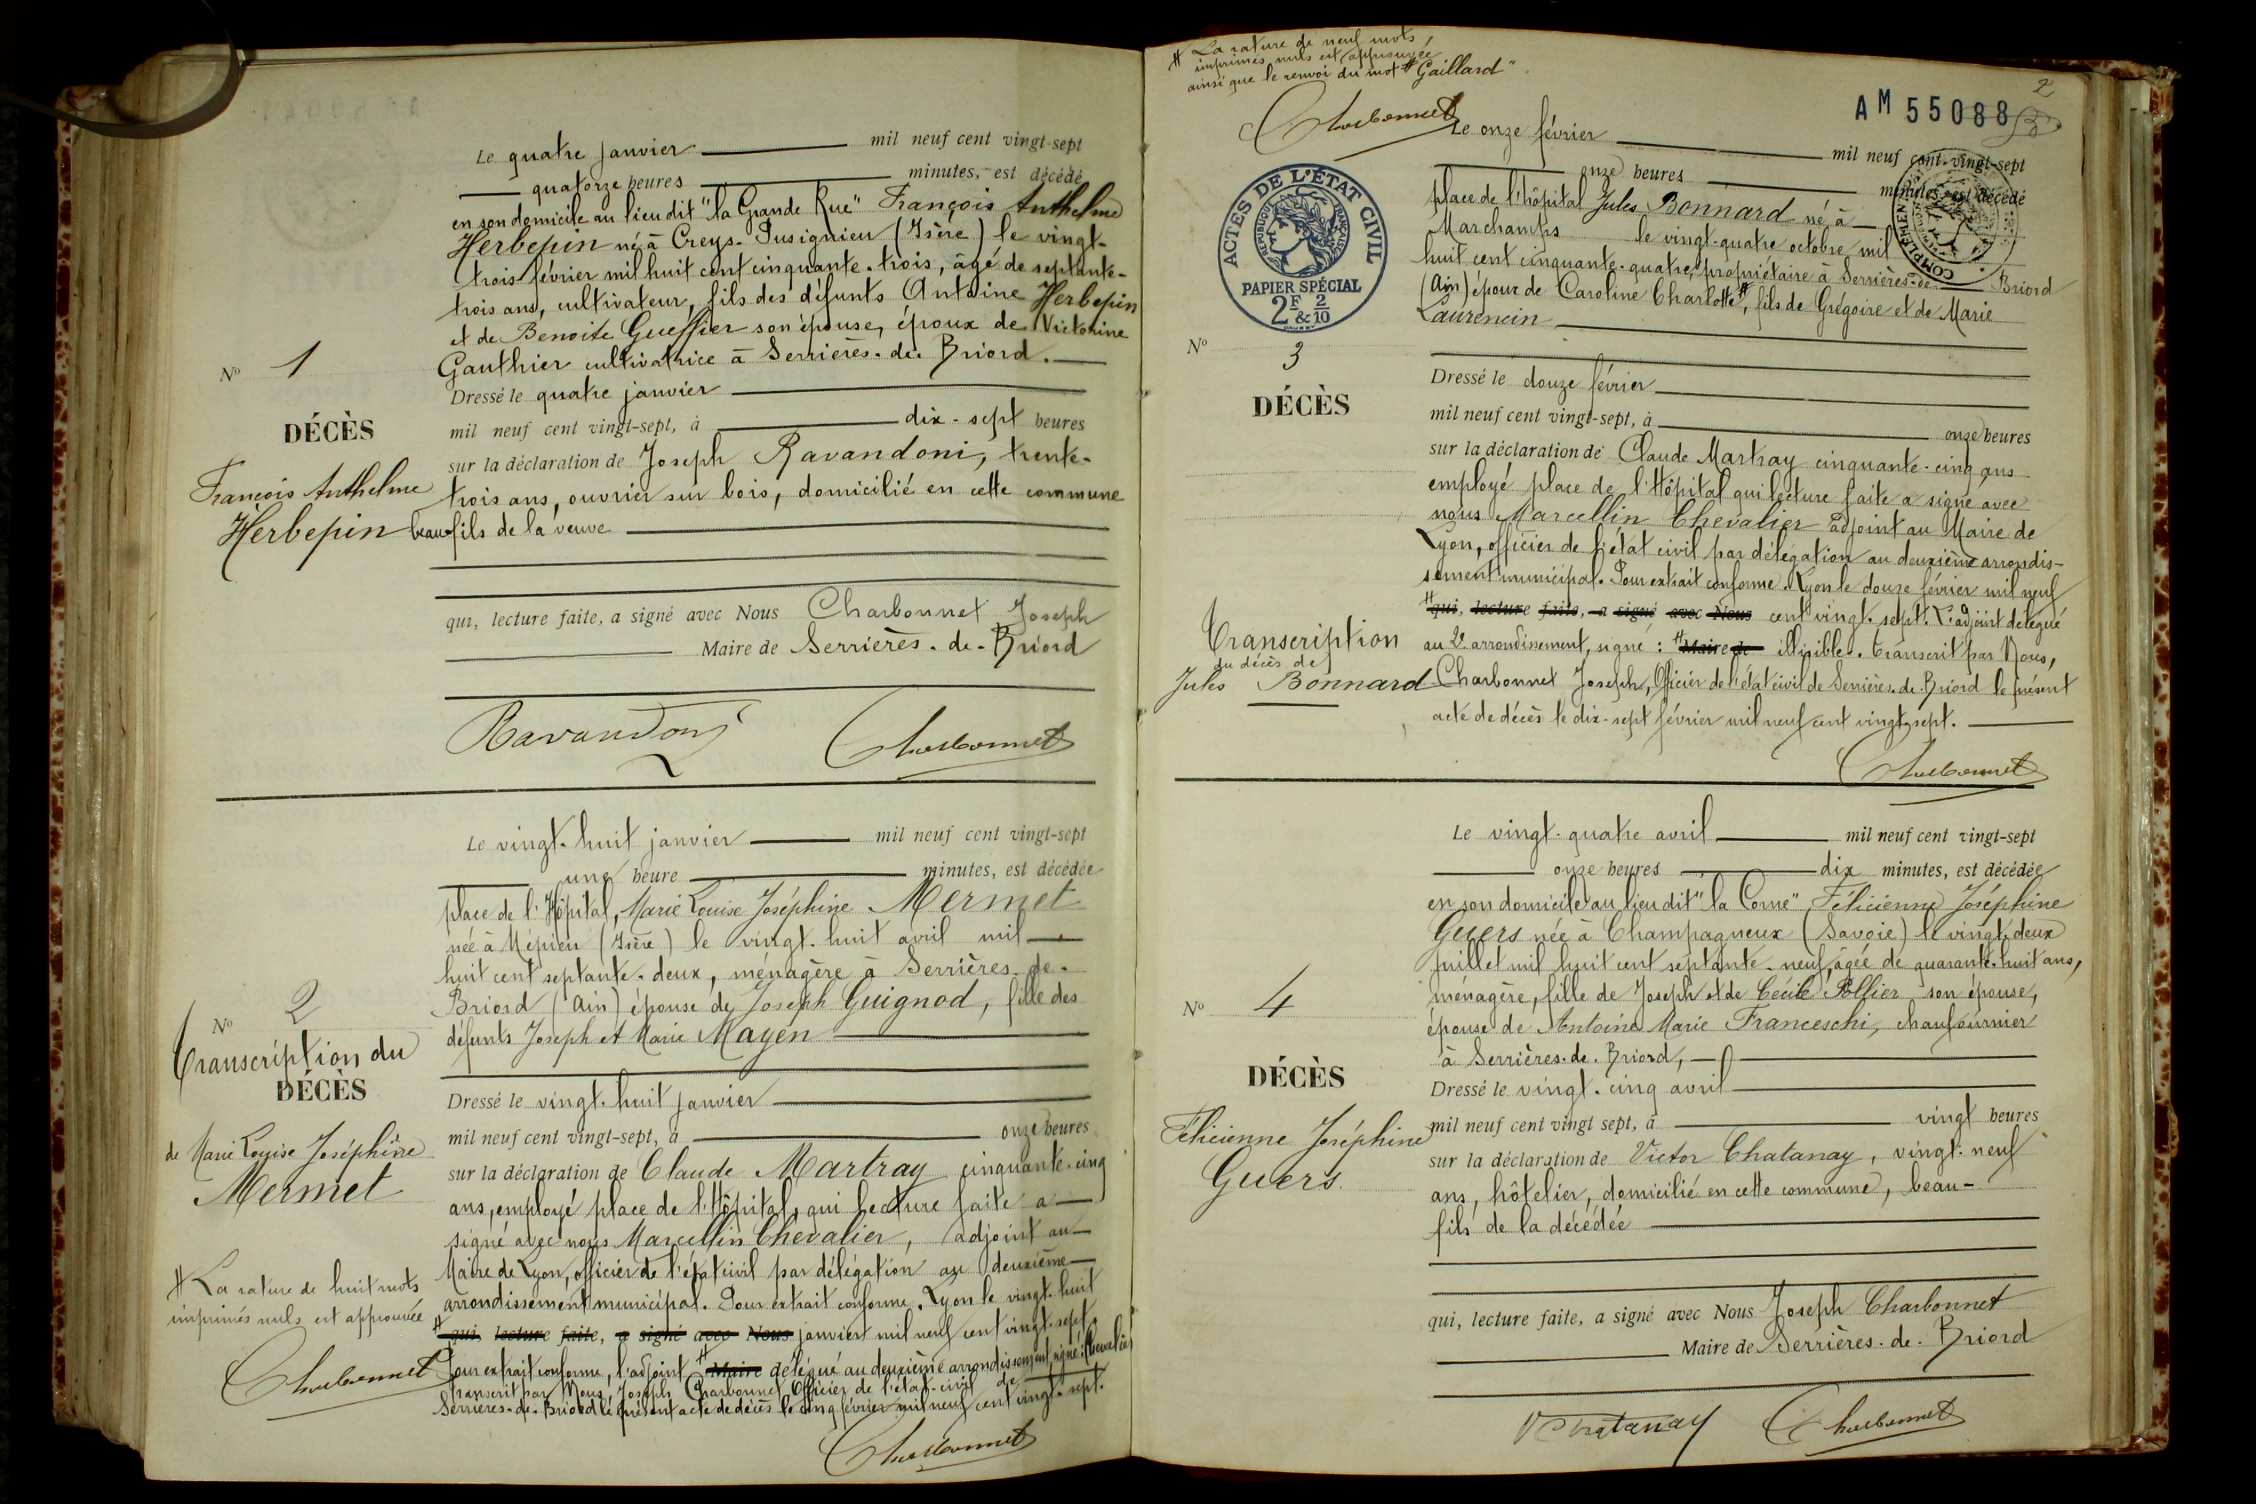 Le quatre janvier mil neuf cent vingt-sept
quatorze heures minutes, est décédé
en son domicile au lieu dit "la Grande Rue" François Anthelme
Herbepin né à Creys-Pusignieu (Isère) le vingt-
trois février mil huit cent cinquante-trois, âgé de septante-
trois ans, cultivateur, fils des défunts Antoine Herbepin
et de Benoite Gueffier son épouse, époux de Victorine
Gauthier cultivatrice à Serrières-de-Briord.
Nº 1
Dressé le quatre janvier
DÉCÈS
mil neuf cent vingt-sept, à dix-sept heures
sur la déclaration de Joseph Ravandoni, trente-
François Anthelme
trois ans, ouvrier sur bois, domicilié en cette commune
Herbepin
beau-fils de la veuve
qui, lecture faite, a signé avec Nous Charbonnet Joseph
Maire de Serrières-de-Briord
Ravandoni Charbonnet
Le vingt-huit janvier mil neuf cent vingt-sept
une heure minutes, est décédée
place de l'Hôpital, Marie Louise Joséphine Mermet
née à Mépieu (Isère) le vingt-huit avril mil
huit cent septante-deux, ménagère à Serrières-de-
Briord (Ain) épouse de Joseph Guignod, fille des
défunts Joseph et Marie Mayen
Nº 2
Transcription du
DÉCÈS
de Marie Louise Joséphine
Mermet
Dressé le vingt-huit janvier
mil neuf cent vingt-sept, à onze heures
sur la déclaration de Claude Martray cinquante-cinq
ans, employé place de l'Hôpital, qui lecture faite a
signé avec nous Marcellin Chevalier, adjoint au
Maire de Lyon, officier de l'état civil par délégation au deuxième
arrondissement municipal. Pour extrait conforme. Lyon le vingt-huit
# qui, lecture faite, a signé avec Nous janvier mil neuf cent vingt-sept
Pour extrait conforme, l'adjoint # Maire délégué au deuxième arrondissement, signé: Chevalier
transcrit par Nous, Joseph Charbonnet Officier de l'état-civil de
Serrières-de-Briord le présent acte de décès le cinq février mil neuf cent vingt-sept.
# La rature de huit mots
imprimés nuls est approuvée
Charbonnet
Charbonnet
# La rature de neuf mots
imprimés nuls est approuvée
ainsi que le renvoi du mot # Gaillard"
Charbonnet
2
AM 55088
Le onze février mil neuf cent vingt-sept
onze heures minutes, est décédé
place de l'hôpital Jules Bonnard né à
Marchamps le vingt-quatre octobre mil
huit cent cinquante-quatre, propriétaire à Serrières-de Briord
(Ain) époux de Caroline Charlotte #, fils de Grégoire et de Marie
Laurencin
ACTES DE L'ÉTAT CIVIL
RÉPUBLIQUE FRANÇAISE
PAPIER SPÉCIAL
2F & 2/10
COMPLÉMEN
Nº 3
DÉCÈS
Transcription
du décès de
Jules Bonnard
Dressé le douze février
mil neuf cent vingt-sept, à onze heures
sur la déclaration de Claude Martray cinquante-cinq ans
employé place de l'Hôpital qui lecture faite a signé avec
nous Marcellin Chevalier adjoint au Maire de
Lyon, officier de l'état civil par délégation au deuxième arrondis-
sement municipal. Pour extrait conforme. Lyon le douze février mil neuf
# qui, lecture faite, a signé avec Nous cent vingt-sept. L'adjoint délégué
au 2e arrondissement, signé: # Maire de illisible. Transcrit par Nous,
Charbonnet Joseph, Officier de l'état civil de Serrières-de-Briord le présent
acte de décès le dix-sept février mil neuf cent vingt-sept.
Charbonnet
Le vingt-quatre avril mil neuf cent vingt-sept
onze heures dix minutes, est décédée
en son domicile au lieu dit "la Corne" Félicienne Joséphine
Guers née à Champagneux (Savoie) le vingt-deux
juillet mil huit cent septante-neuf, âgée de quarante-huit ans,
ménagère, fille de Joseph et de Cécile Pollier son épouse,
épouse de Antoine Marie Franceschi, chaufournier
à Serrières-de-Briord,
Nº 4
DÉCÈS
Félicienne Joséphine
Guers
Dressé le vingt-cinq avril
mil neuf cent vingt sept, à vingt heures
sur la déclaration de Victor Chatanay, vingt-neuf
ans, hôtelier, domicilié en cette commune, beau-
fils de la décédée
qui, lecture faite, a signé avec Nous Joseph Charbonnet
Maire de Serrières-de-Briord
V Chatanay Charbonnet